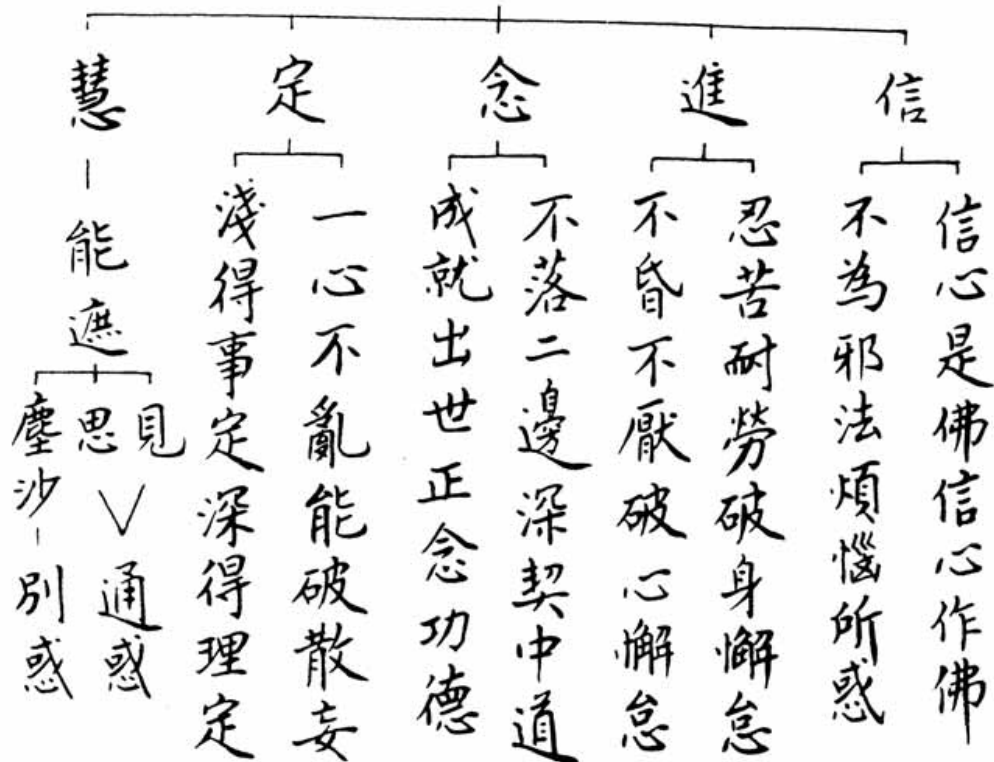 信
信心是佛信心作佛
不為邪法煩惱所惑
進
忍苦耐勞破身懈怠
不昏不厭破心懈怠
念
不落二邊深契中道
成就出世正念功德
定
一心不亂能破散妄
淺得事定深得理定
慧
能遮
見
思
通惑
塵沙
別惑